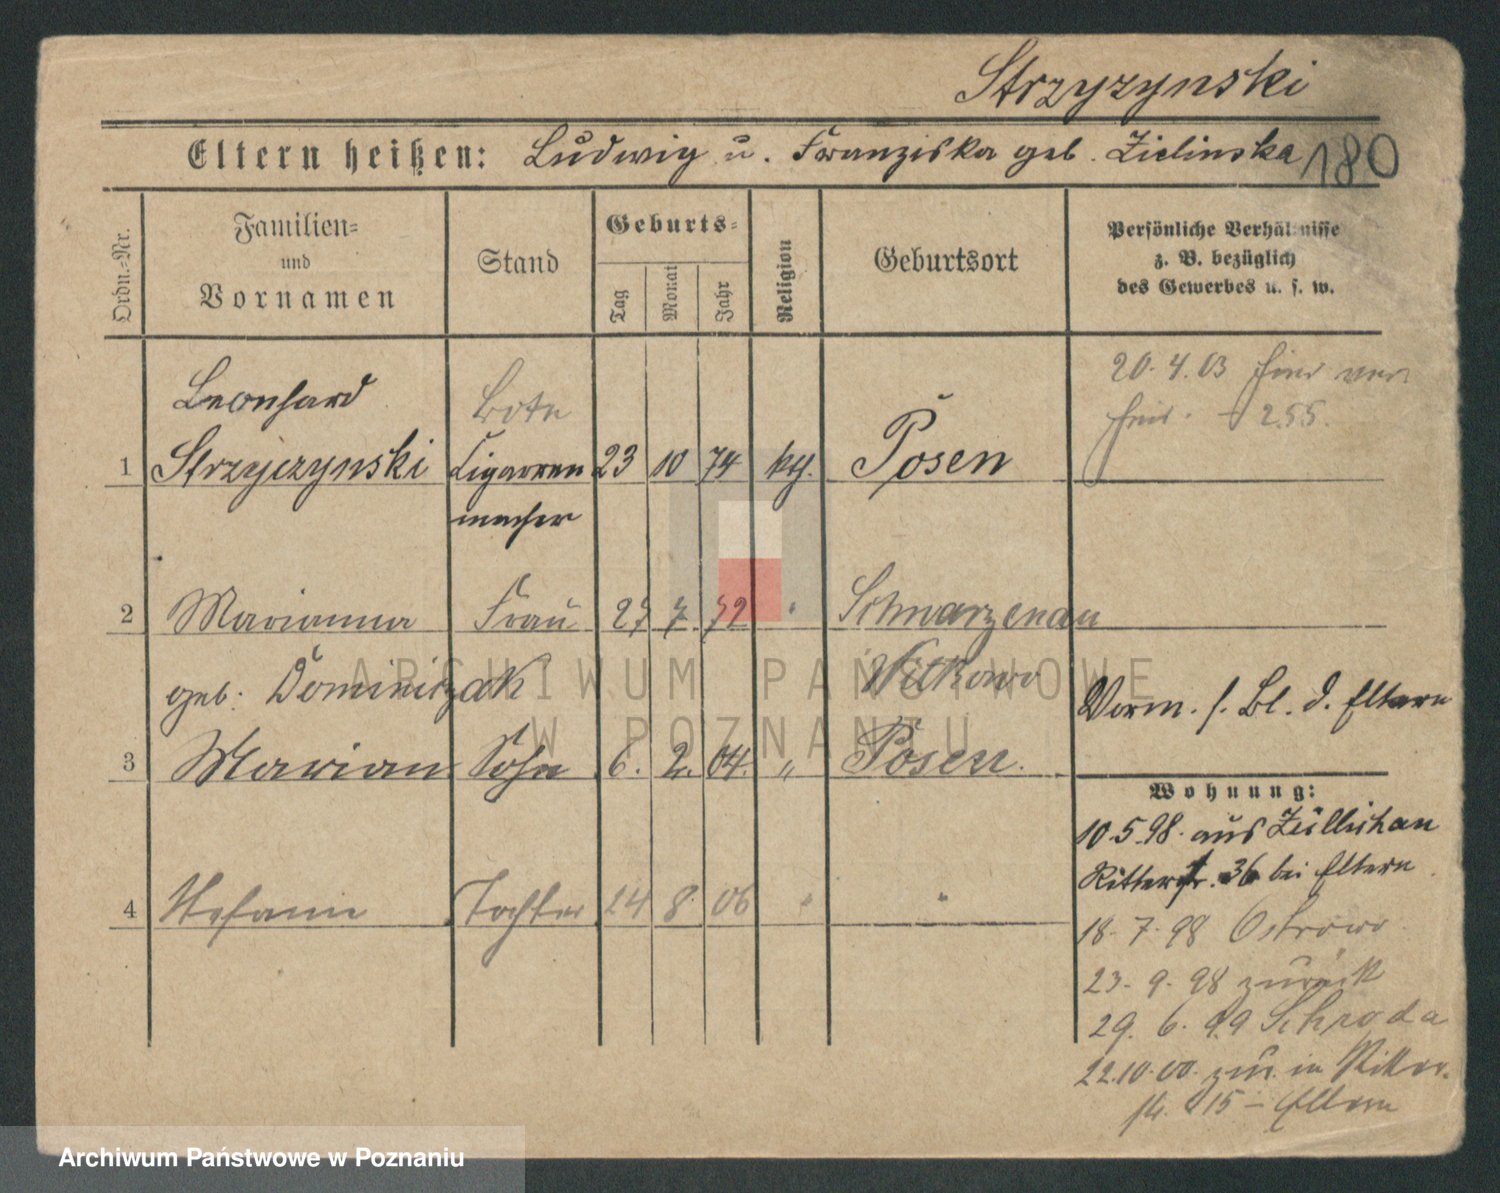 Strzyzynski
Eltern heißen: Ludwig u. Franziska geb. Zielinska 180
Ordn.-Nr.
Familien-
und
Vornamen
Stand
Geburts-
Tag
Monat
Jahr
Religion
Geburtsort
Persönliche Verhältnisse
z. B. bezüglich
des Gewerbes u. s. w.
Leonhard Bote 20.4.03 hier
1 Strzyczynski Cigarren 23 10 74 kth. Posen
macher
2 Marianna Frau 7 72 " Schwarzenau
geb. Dominiczak Witkowo
Vorm. s. Bl. d. Eltern
3 Marian Sohn 6. 2. 04. " Posen.
Wohnung:
10.5.98. aus Züllichau
Ritterstr. 36 bei Eltern
4 Stefanie Tochter 24 8. 06 " "
18.7.98 Ostrowo
23.9.98 zurück
29.6.99 Schroda
22.10.00. zur. in Ritter-
str. 15 – Eltern
ARCHIWUM PAŃSTWOWE
W POZNANIU
Archiwum Państwowe w Poznaniu